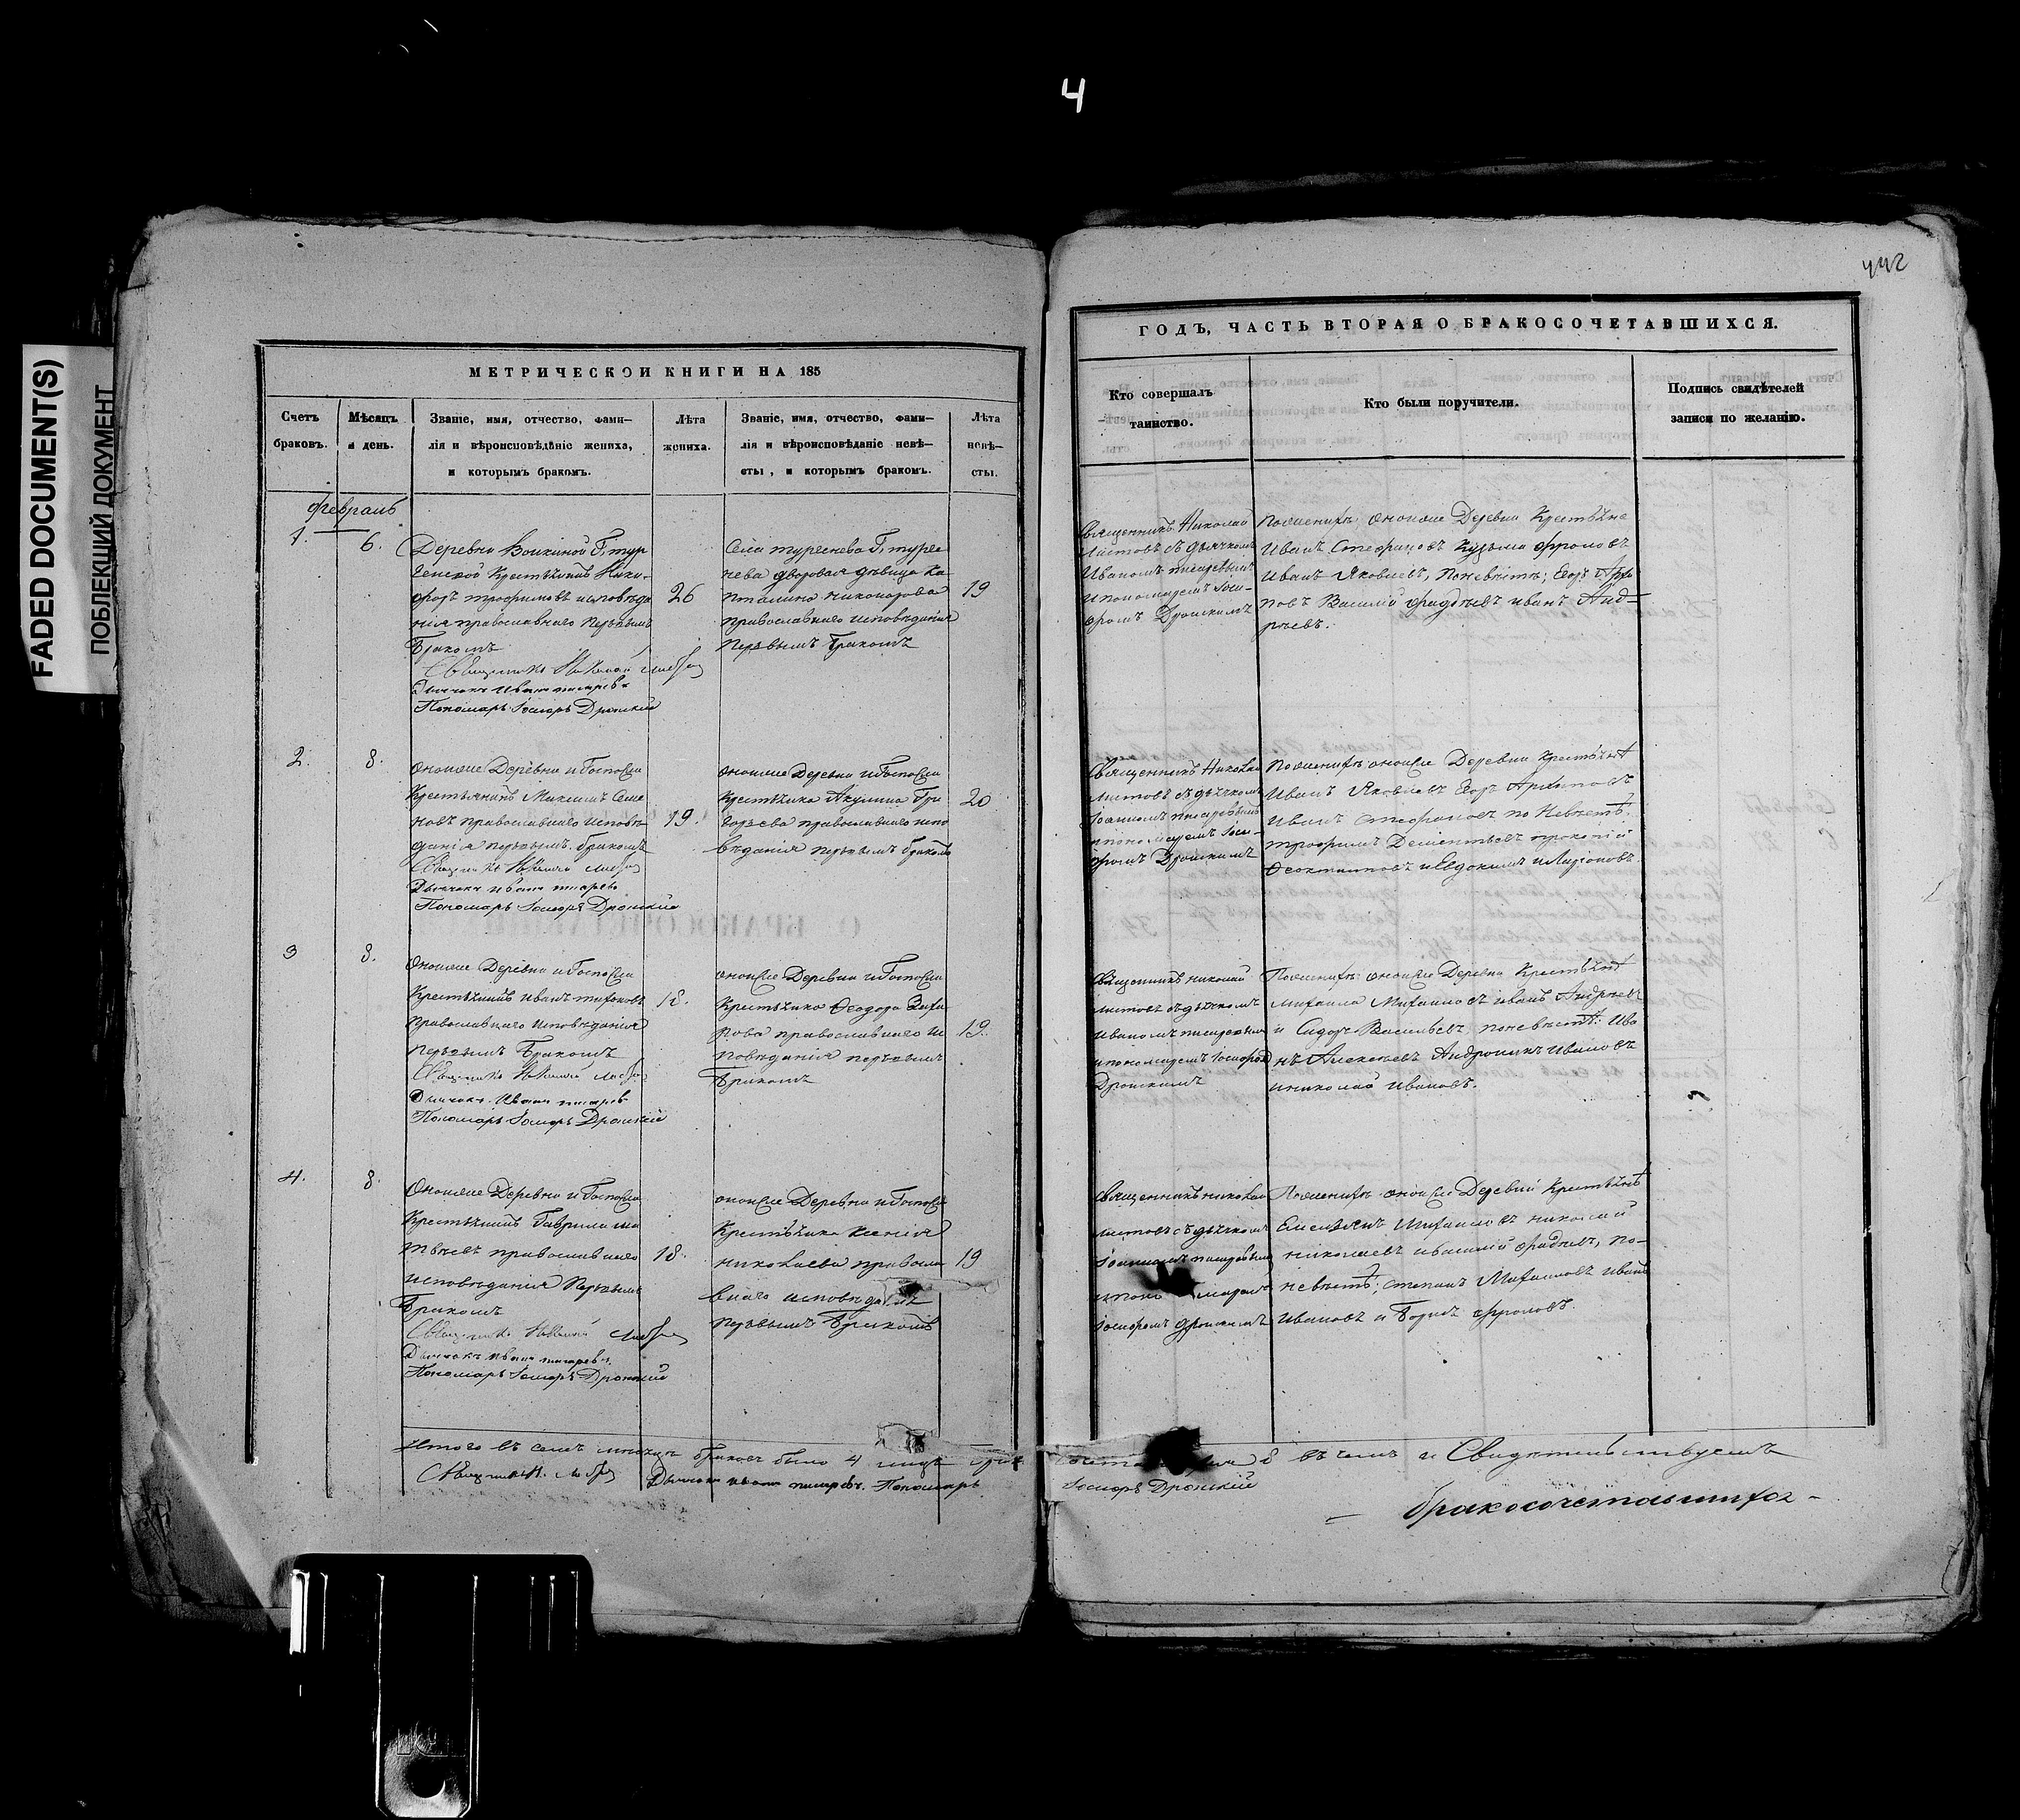 4
442
FADED DOCUMENT(S)
ПОБЛЕКШИЙ ДОКУМЕНТ
МЕТРИЧЕСКОЙ КНИГИ НА 185
Счетъ
браковъ.
Мѣсяцъ
и день.
Званіе, имя, отчество, фами-
лія и вѣроисповѣданіе жениха,
и которымъ бракомъ.
Лѣта
жениха.
Званіе, имя, отчество, фами-
лія и вѣроисповѣданіе невѣ-
сты, и которымъ бракомъ.
Лѣта
невѣ-
сты.
февраль
1.
6.
Деревни Волкиной Г. тур
генской Крестьянинъ Ники-
форъ трофимовъ исповѣда
нія православнаго первымъ
Бракомъ
Священникъ Николай
Дьячокъ Иванъ писаревъ
Пономарь Іосифъ Дронскій
26
села тургенева Г. турге
нева дворовая дѣвица Ка
питалина никонорова
православнаго исповѣданія
первымъ бракомъ
19
2.
8.
Оной же Деревни и Госпожи
Крестьянинъ Максимъ Семе
новъ православнаго исповѣ
данія первымъ бракомъ
Дьячокъ иванъ писаревъ
Пономарь Іосифъ Дронскій
19.
оной же Деревни и Госпожи
Крестьянка Акулина Гри
горьева православнаго испо
вѣданія первымъ бракомъ
20
3
8.
Оной же Деревни и Госпожи
Крестьянинъ иванъ тихоновъ
православнаго исповѣданія
первымъ Бракомъ
Дьячокъ Иванъ писаревъ
Пономарь Іосифъ Дронскій
18.
оной же Деревни и Госпожи
Крестьянка Ѳеодора Заха
рова православнаго и
повѣданія первымъ
Бракомъ
19.
4.
8.
Оной же Деревни и Госпожи
Крестьянинъ Гаврила ма
твѣевъ православнаго
исповѣданія Первымъ
Бракомъ
Дьячокъ иванъ писаревъ
Пономарь Іосифъ Дронскій
18.
оной же Деревни и Госпожи
Крестьянка Ксенія
николаева правосла
внаго исповѣданія
первымъ Бракомъ
19
Итого въ семъ мѣсяцѣ браковъ было 4
Дьячокъ иванъ писаревъ. Пономарь
ГОДЪ, ЧАСТЬ ВТОРАЯ О БРАКОСОЧЕТАВШИХСЯ.
Кто совершалъ
таинство.
Кто были поручители.
Подпись свидѣтелей
записи по желанію.
Священникъ Николай
листовъ съ дьячкомъ
Иваномъ писаревымъ
и пономаремъ Іоси-
фомъ Дронскимъ
По женихѣ: оной же Деревни Крестьяне
Иванъ Стефановъ Кузьма фроловъ
Иванъ Яковлевъ, По невѣстѣ; Егоръ Архи
повъ Василій фадѣевъ иванъ Анд-
рѣевъ.
Священникъ Николай
листовъ съ дьячкомъ
Іоанномъ писаревымъ
и пономаремъ Іоси-
фомъ Дронскимъ
По женихѣ оной же Деревни Крестьяне
Иванъ Яковлевъ Егоръ Архиповъ
Иванъ Стефановъ по Невѣстѣ:
трофимъ Дементьевъ прокопій
Ѳеоктистовъ и Евдокимъ Иларіоновъ.
Священникъ николай
листовъ съ дьячкомъ
Иваномъ писаревымъ
и пономаремъ Іосифомъ
Дронскимъ
По женихѣ: оной же Деревни Крестьяне
Михаила Михайловъ иванъ Андрѣевъ
и Сидоръ Васильевъ, по невѣстѣ: Ива
нъ Алексѣевъ Андроникъ Ивановъ
и николай Ивановъ.
Священникъ николай
листовъ съ дьячкомъ
Іоанномъ писаревымъ
Іосифомъ дронскимъ
По женихѣ оной же Деревни Крестьяне
Емельянъ Михайловъ николай
николаевъ и василій фадѣевъ, по-
невѣстѣ; степанъ Михайловъ Иванъ
Ивановъ и Борисъ фроловъ.
въ чемъ и Свидѣтельствуемъ
Іосифъ Дронскій
– бракосочетавшихся –